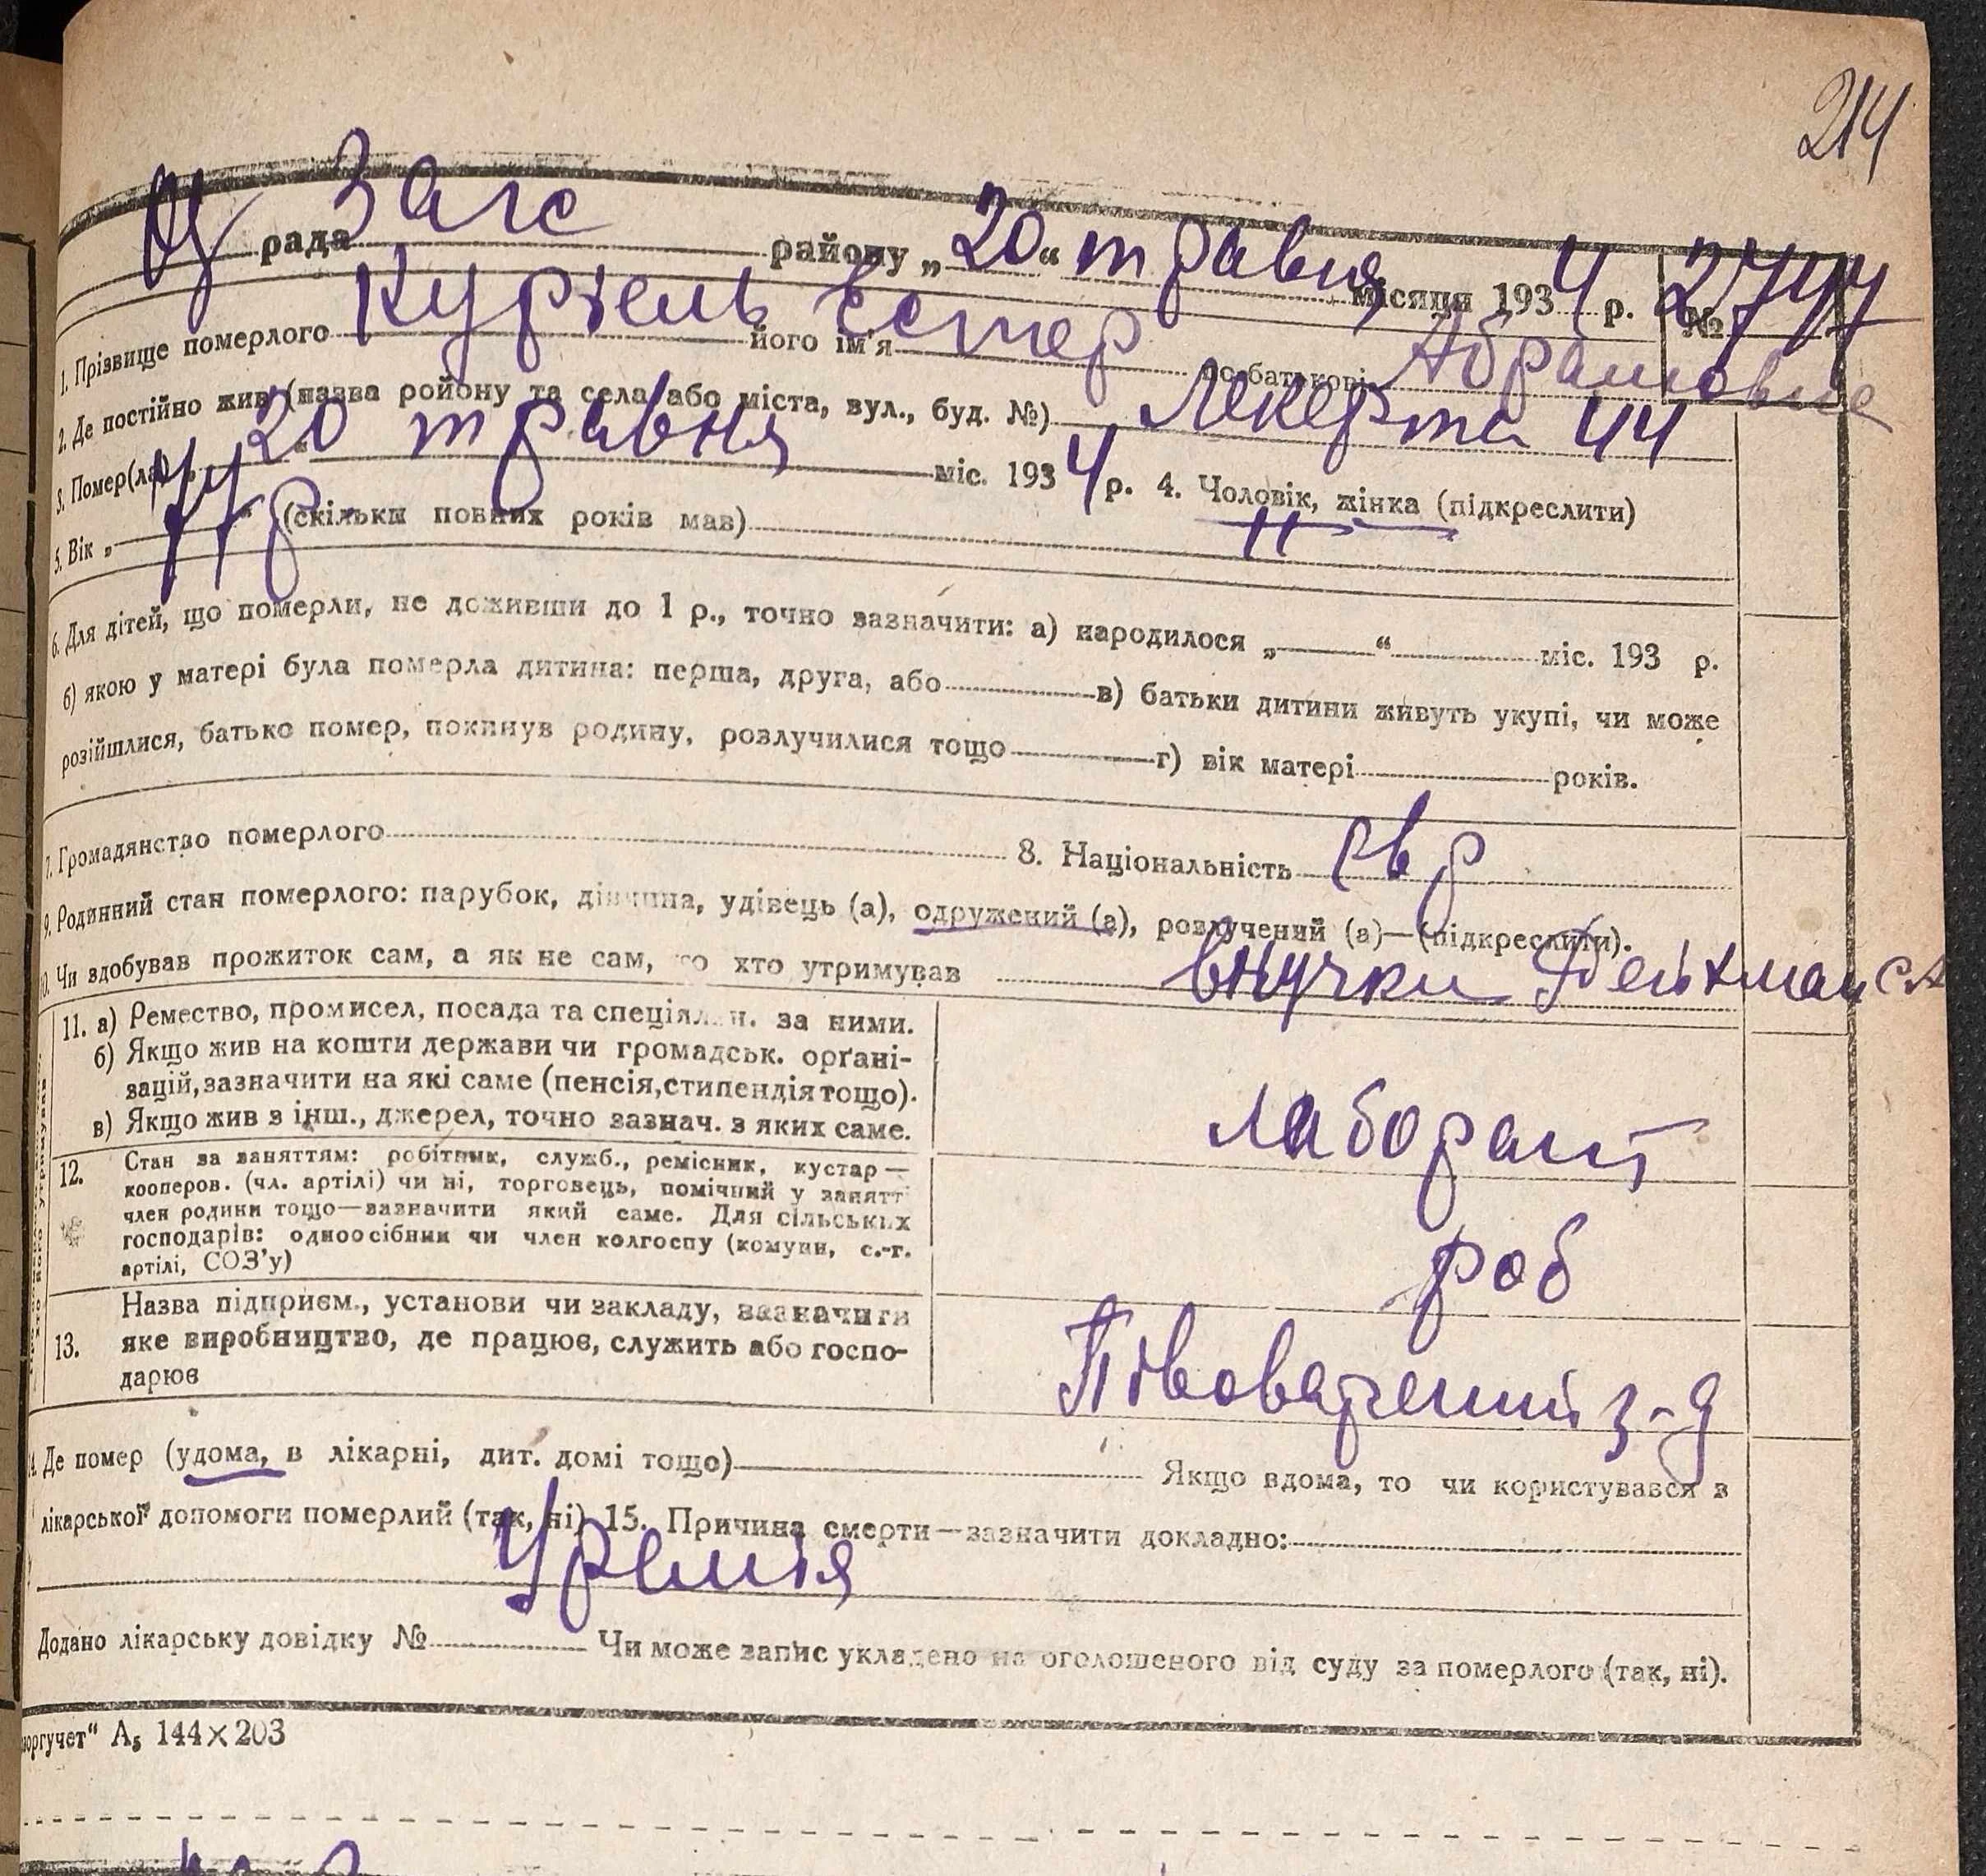 214
Загс
рада района „20“ травня місяця 1934 р. № 2744
1. Прізвище померлого Курзель його ім'я Естер по батькові Абрамовна
2. Де постійно жив (назва ройону та села або міста, вул., буд. №) Лекерта 44
3. Помер(ла) „20“ травня міс. 1934 р. 4. Чоловік, жінка (підкреслити)
5. Вік „77 р“ (скільки повних років мав)
6. Для дітей, що померли, не доживши до 1 р., точно зазначити: а) народилося „ “ міс. 193 р.
б) якою у матері була померла дитина: перша, друга, або в) батьки дитини живуть укупі, чи може
розійшлися, батько помер, покинув родину, розлучилися тощо г) вік матері років.
7. Громадянство померлого 8. Національність евр
9. Родинний стан померлого: парубок, дівчина, удівець (а), одружений (а), розлучений (а)—(підкреслити).
10. Чи здобував прожиток сам, а як не сам, то хто утримував внучки
11. а) Ремество, промисел, посада та спеціяльн. за ними.
б) Якщо жив на кошти держави чи громадськ. орґані-
зацій, зазначити на які саме (пенсія, стипендія тощо).
в) Якщо жив з інш., джерел, точно зазнач. з яких саме.
лаборант
12. Стан за заняттям: робітник, служб., ремісник, кустар—
кооперов. (чл. артілі) чи ні, торговець, помічний у занятт
член родини тощо—зазначити який саме. Для сільських
господарів: одноосібник чи член колгоспу (комуни, с.-г.
артілі, СОЗ'у)
роб
13. Назва підприєм., установи чи закладу, зазначити
яке виробництво, де працює, служить або госпо-
дарює
Півоварений з-д
14. Де помер (удома, в лікарні, дит. домі тощо) Якщо вдома, то чи користувався з
лікарської допомоги померлий (так, ні) 15. Причина смерти—зазначити докладно:
Уремія
Додано лікарську довідку № Чи може запис укладено на оголошеного від суду за померлого (так, ні).
оргучет“ А₅ 144×203